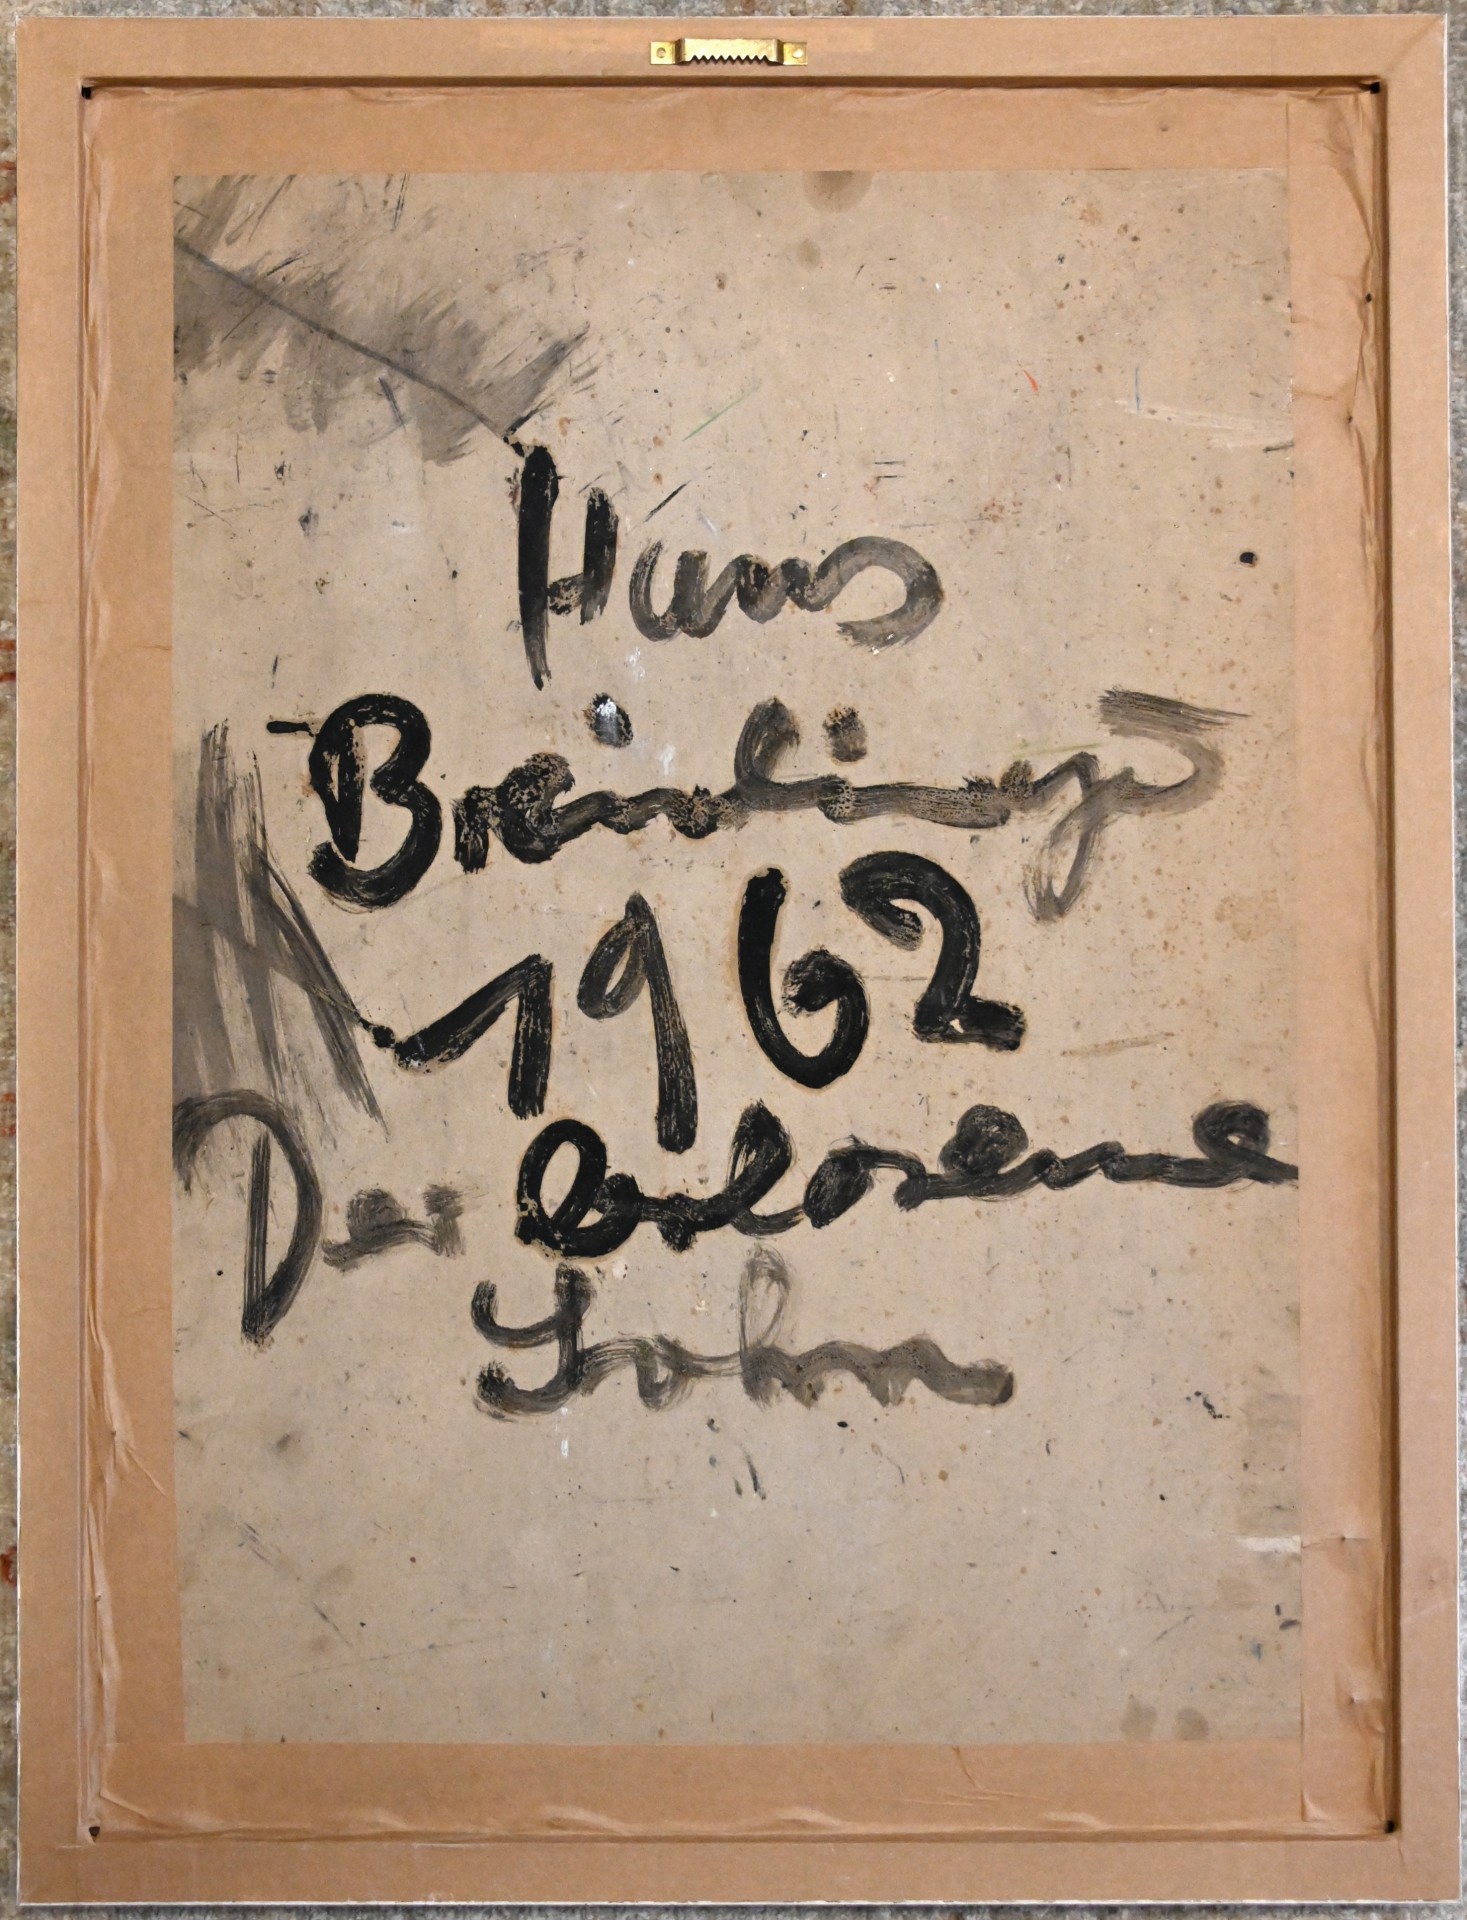 Hans
Breinlinger
1962
Der verlorene
Sohn